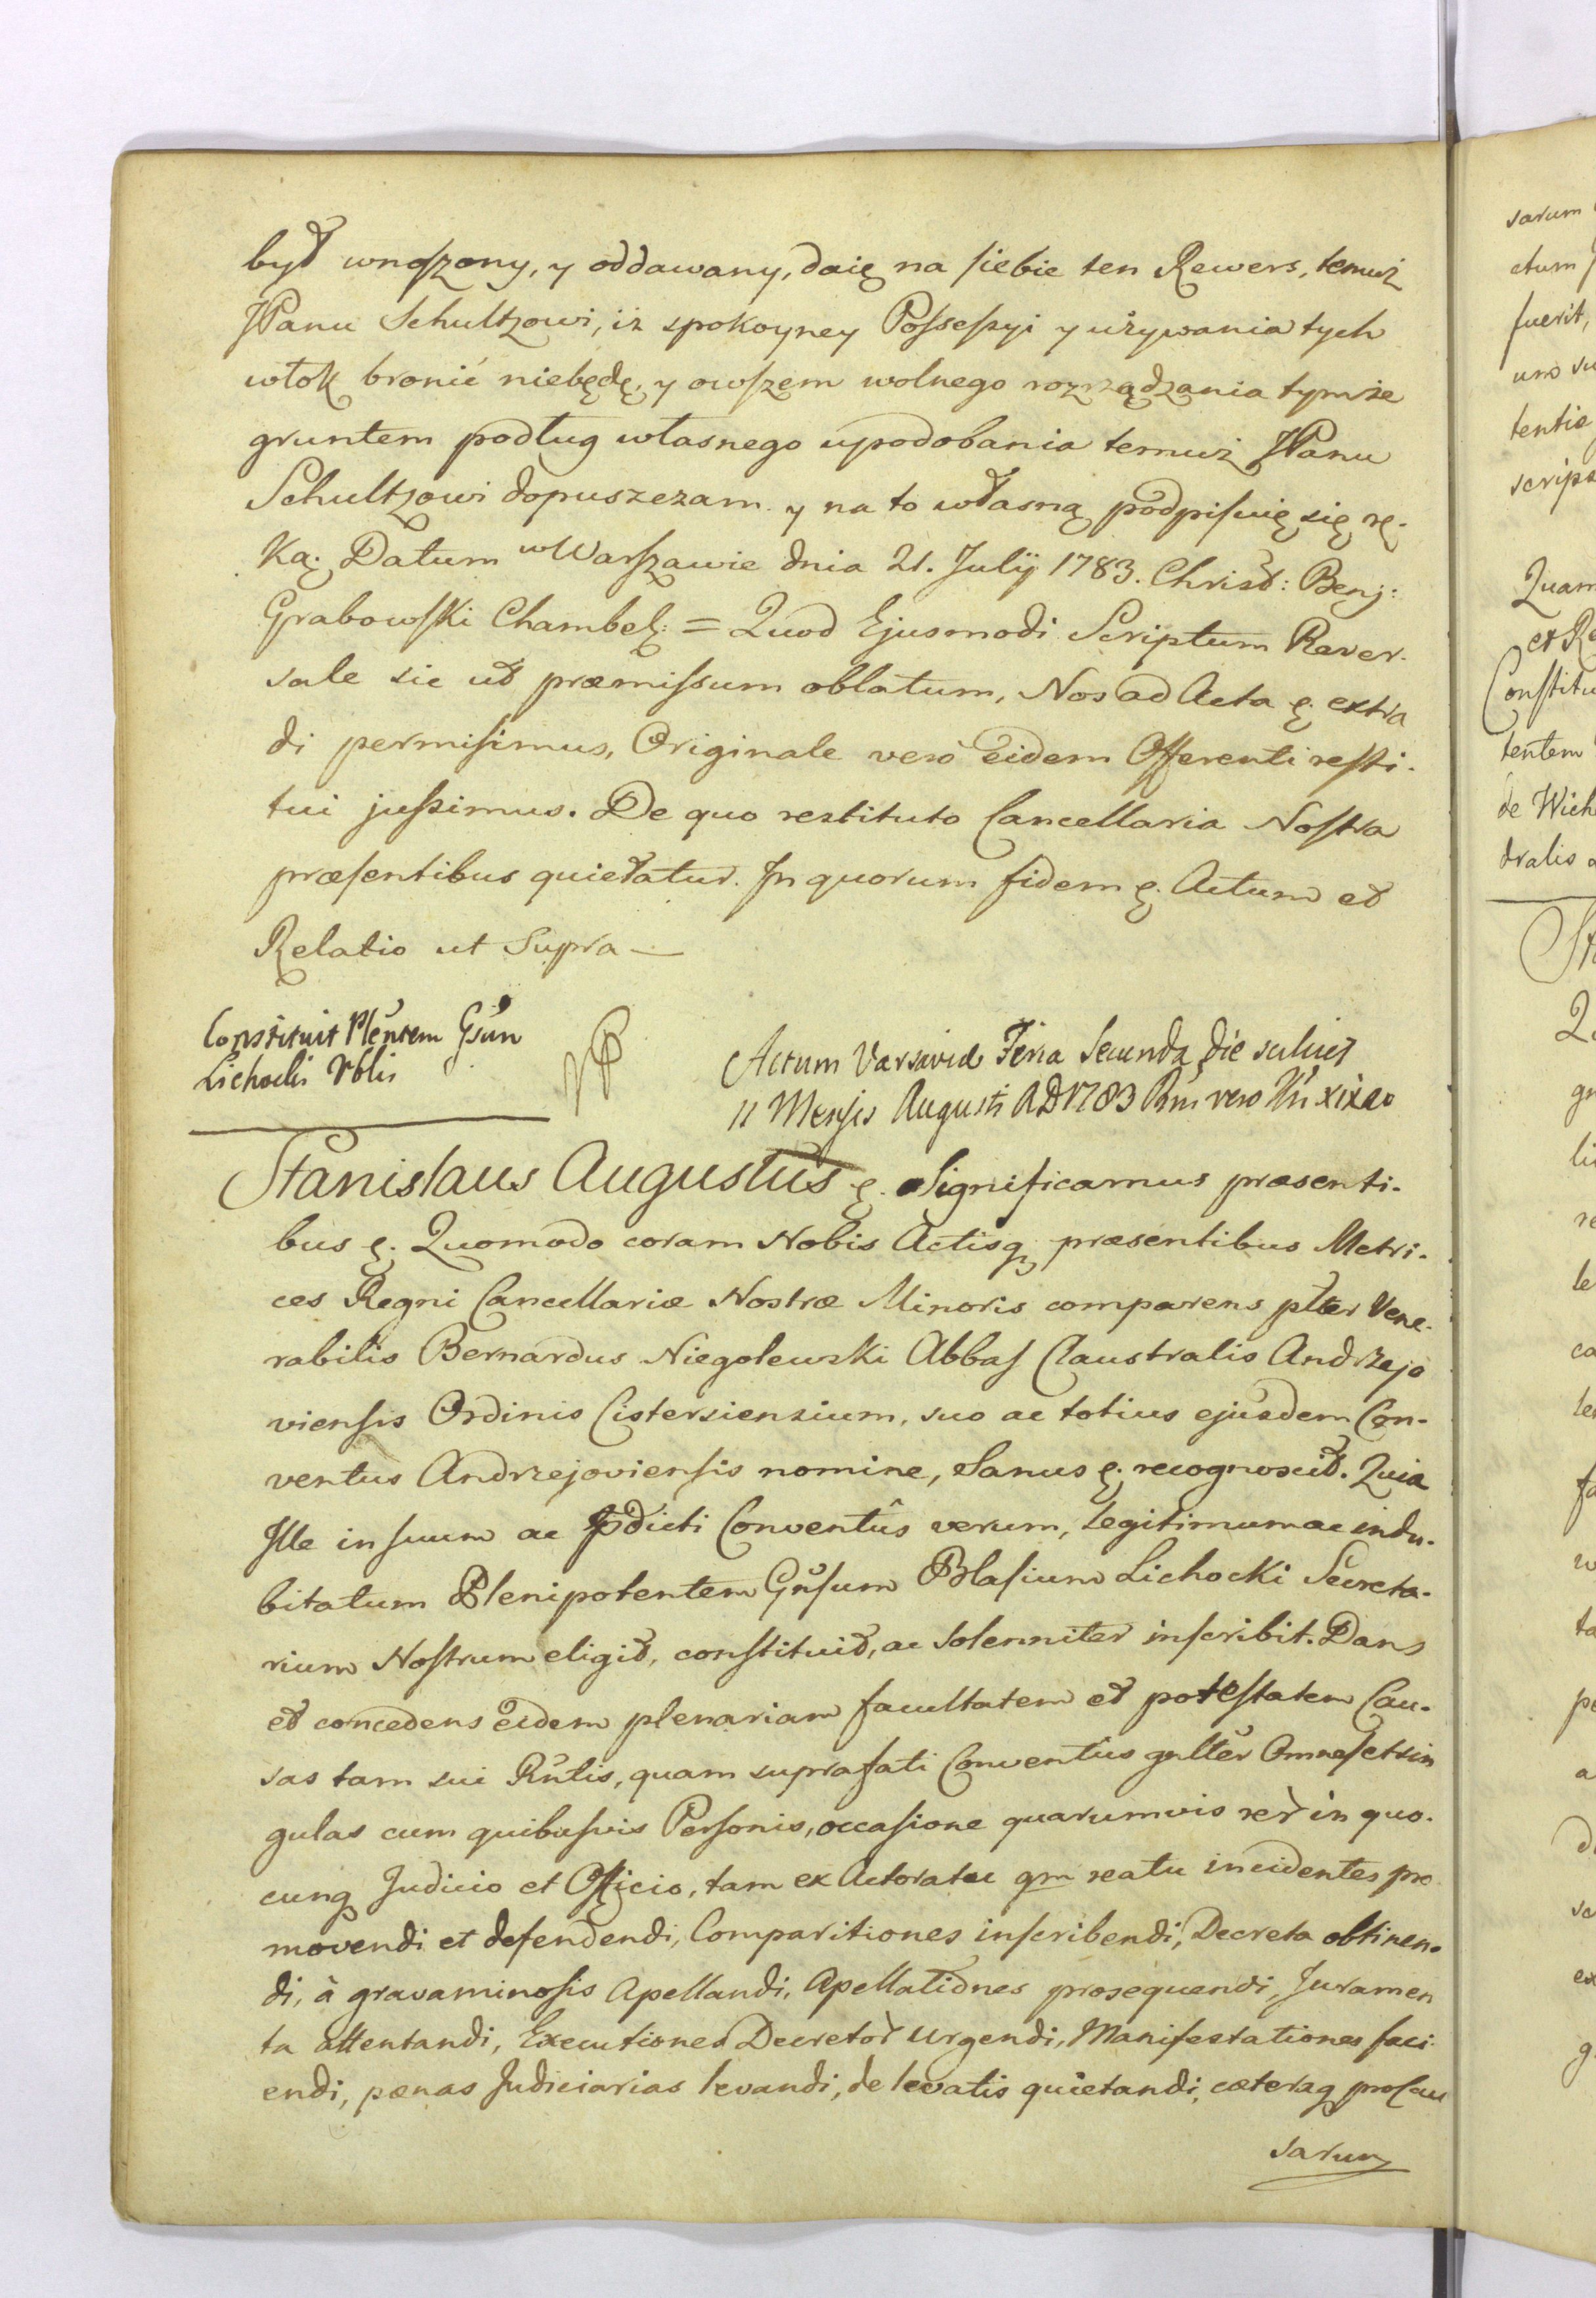 był wnoszony, y oddawany, daię na siebie ten Rewers, temuż
JPanu Schultzowi, iż spokoyney Possessyi y używania tych
włok bronić niebędę, y owszem wolnego rozrządzania tymże
gruntem podług własnego upodobania temuż JPanu
Schultzowi dopuszczam y na to własną podpisuię się rę-
ką. Datum w Warszawie dnia 21. Julij 1783. Christ: Benj:
Grabowski Chambel: = Quod Ejusmodi Scriptum Rever-
sale sic ut præmissum oblatum, Nos ad Acta &. extra
di permisimus, Originale verò Eidem Offerenti resti-
tui jussimus. De quo restituto Cancellaria Nostra
præsentibus quietatur. In quorum fidem &. Actum et
Relatio ut Supra —
Constituit Plentem Gsūn
Lichocki Vblis
Actum Varsaviæ Feria Secunda die scilicet
11 Mensis Augusti AD 1783 Rni vero Nri xix ao
Stanislaus Augustus &. Significamus præsenti-
bus &. Quomodo coram Nobis Actisq præsentibus Metri-
ces Regni Cancellariæ Nostræ Minoris comparens plter Vene-
rabilis Bernardus Niegolewski Abbas Claustralis Andrzejo
viensis Ordinis Cisterziensium, suo ac totius ejusdem Con-
ventus Andrzejoviensis nomine, Sanus &. recognoscit. Quia
Ille in suum ac pdicti Conventûs verum, legitimum ac indu-
bitatum Plenipotentem Gnsum Blasium Lichocki Secreta-
rium Nostrum eligit, constituit, ac solenniter inscribit. Dans
et concedens eidem plenariam facultatem et potestatem Cau-
sas tam sui Rntis, quam suprafati Conventûs gnlter Omnes et sin
gulas cum quibusvis Personis, occasione quarumvis rer in quo-
cunq Judicio et Officio, tam ex Actoratu qm reatu incidentes pro
movendi et defendendi, Comparitiones inscribendi, Decreta obtinen-
di, à gravaminosis Apellandi, Apellationes prosequendi, Juramen
ta attentandi, Executiones Decretor urgendi, Manifestationes faci-
endi, pænas Judiciarias levandi, de levatis quietandi, cæteraq pro Cau
sarum